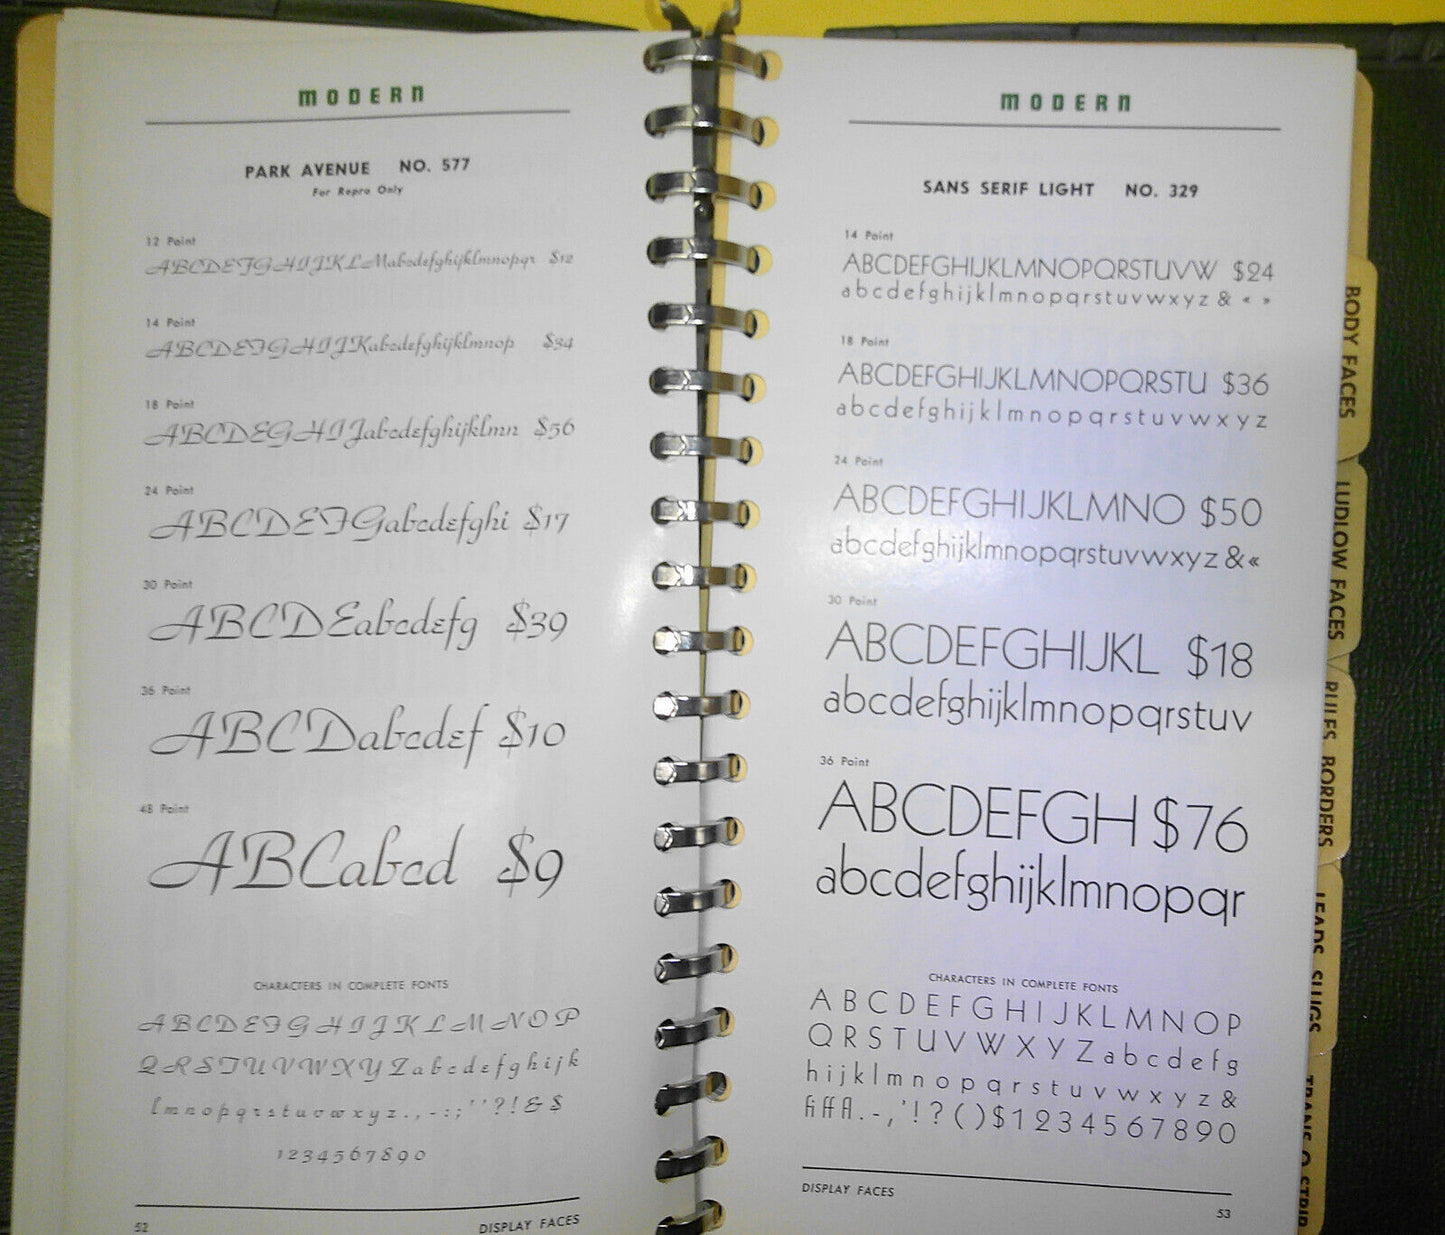 MODERN
PARK AVENUE NO. 577
For Repro Only
12 Point
ABCDEFGHIJKLMabcdefghijklmnopqr $12
14 Point
ABCDEFGHIJKabcdefghijklmnop $34
18 Point
ABCDEGHIJabcdefghijklmn $56
24 Point
ABCDEFGabcdefghi $17
30 Point
ABCDEabcdefg $39
36 Point
ABCDabcdef $10
48 Point
ABCabcd $9
CHARACTERS IN COMPLETE FONTS
ABCDEFGHIJKLMNOP
QRSTUVWXYZabcdefghijk
lmnopqrstuvwxyz.,-:;''?!&$
1234567890
52 DISPLAY FACES
MODERN
SANS SERIF LIGHT NO. 329
14 Point
ABCDEFGHIJKLMNOPQRSTUVW $24
abcdefghijklmnopqrstuvwxyz & « »
18 Point
ABCDEFGHIJKLMNOPQRSTU $36
abcdefghijklmnopqrstuvwxyz
24 Point
ABCDEFGHIJKLMNO $50
abcdefghijklmnopqrstuvwxyz&«
30 Point
ABCDEFGHIJKL $18
abcdefghijklmnopqrstuv
36 Point
ABCDEFGH $76
abcdefghijklmnopqr
CHARACTERS IN COMPLETE FONTS
ABCDEFGHIJKLMNOP
QRSTUVWXYZabcdefg
hijklmnopqrstuvwxyz&
fifffl.-,'!?()$1234567890
DISPLAY FACES
53
BODY FACES
LUDLOW FACES
RULES BORDERS
LEADS SLUGS
TRANS O STRIP